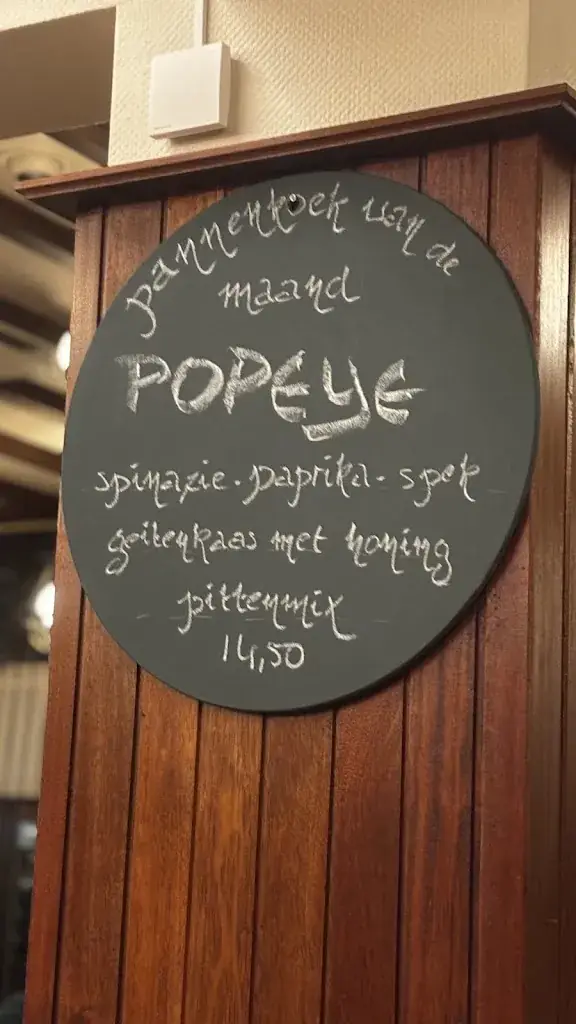 pannenkoek van de
maand
POPEYE
spinazie. paprika. spek
geitenkaas met honing
pittenmix
14,50